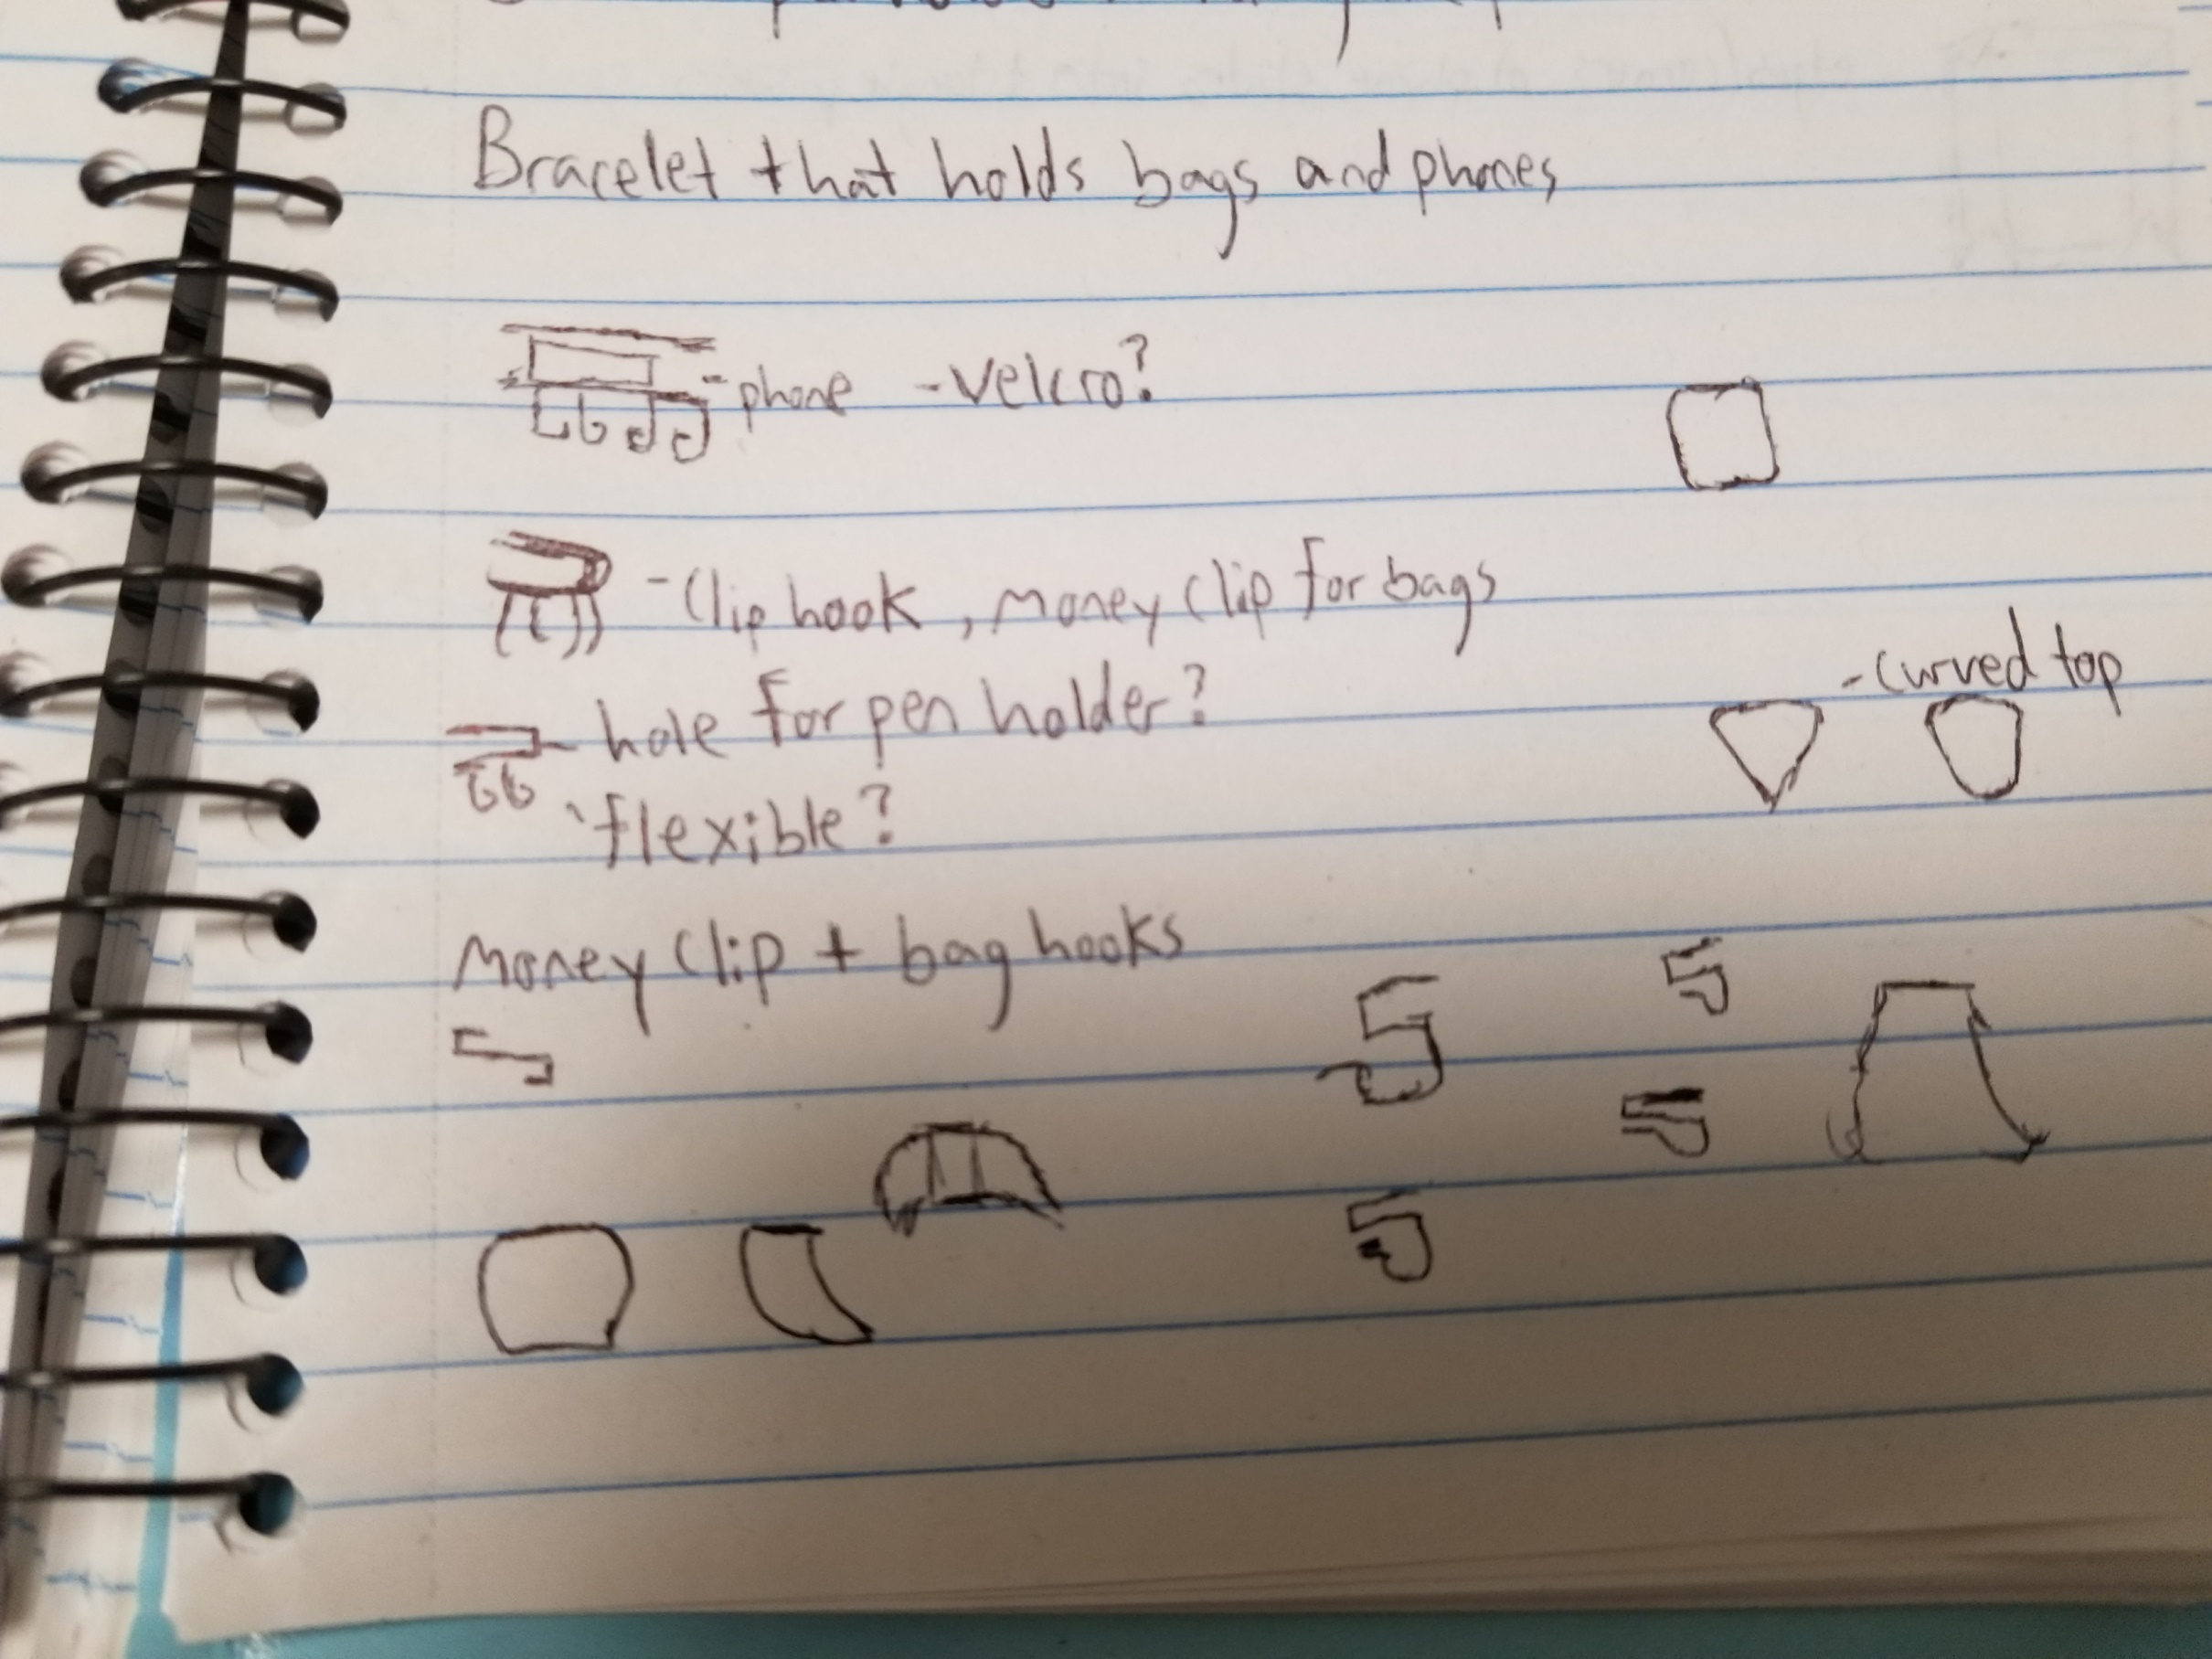 Bracelet that holds bags and phones
-phone -velcro?
-Clip hook, money clip for bags
hole for pen holder?
-curved top
flexible?
Money clip + bag hooks